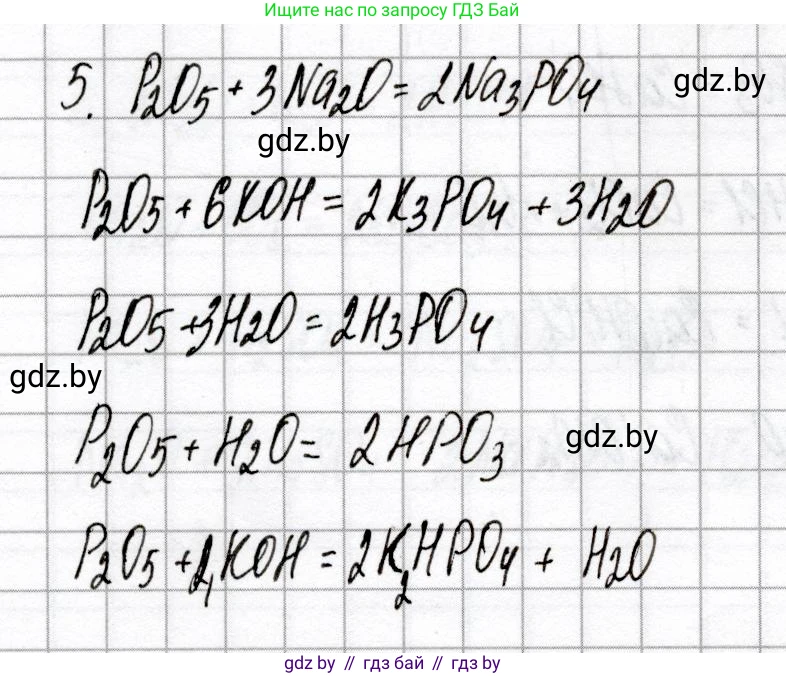 Ищите нас по запросу ГДЗ Бай
5. P₂O₅ + 3Na₂O = 2Na₃PO₄
gdz.by
gdz.by
P₂O₅ + 6KOH = 2K₃PO₄ + 3H₂O
P₂O₅ + 3H₂O = 2H₃PO₄
gdz.by
P₂O₅ + H₂O = 2HPO₃
gdz.by
P₂O₅ + 4KOH = 2K₂HPO₄ + H₂O
gdz by // гдз бай // гдз by